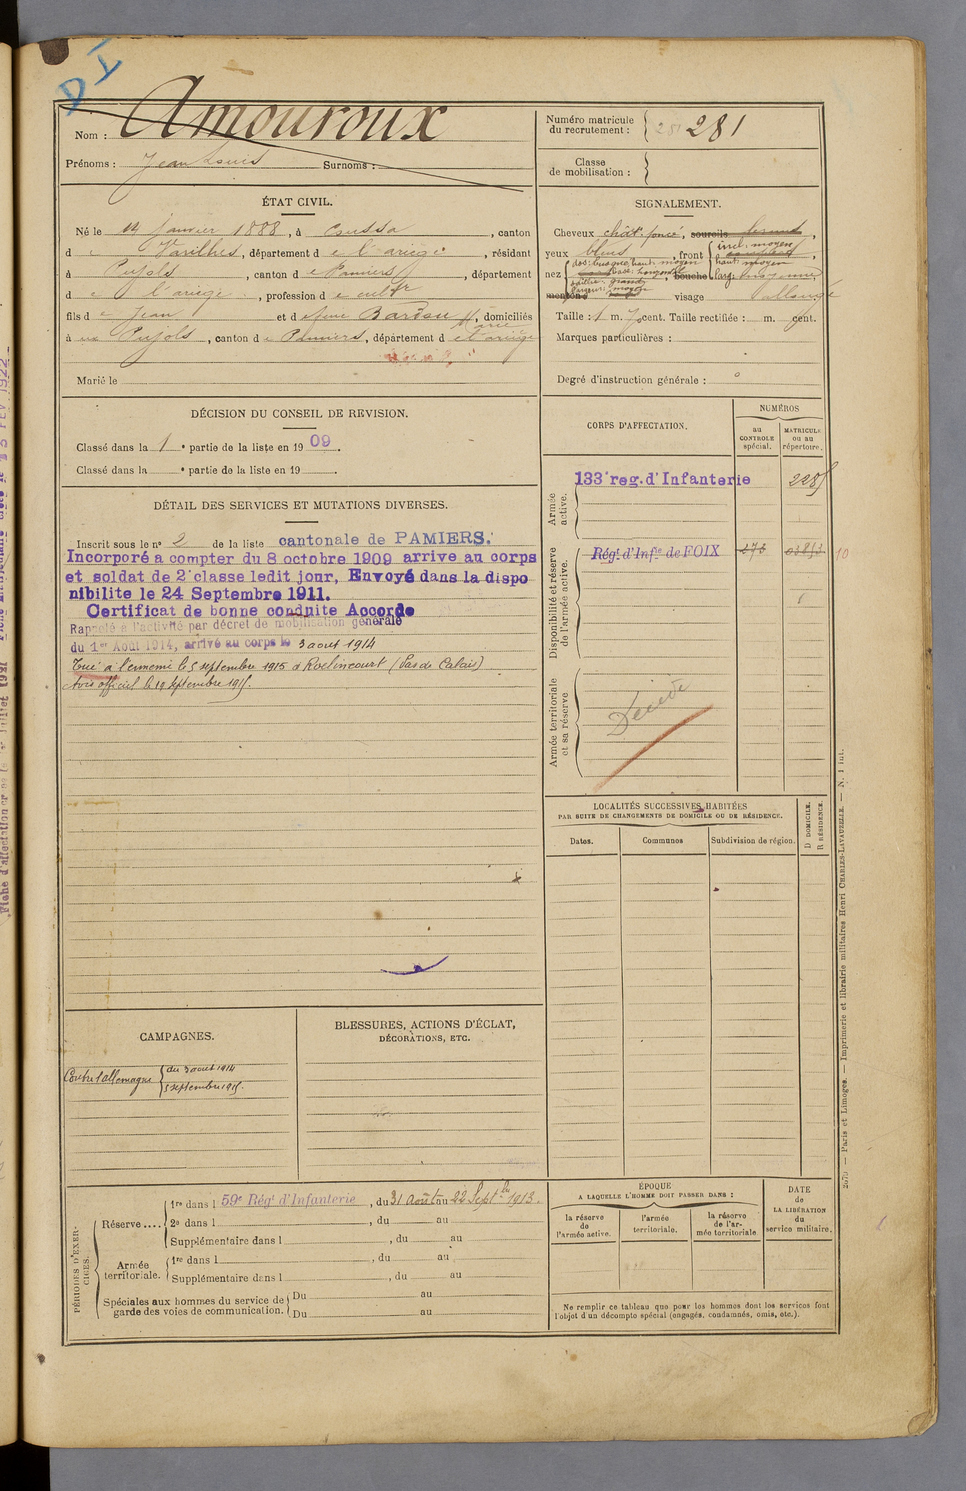 DI
Nom : Amouroux
Prénoms : Jean Louis Surnoms :
Numéro matricule
du recrutement : 281 281
Classe
de mobilisation :
ÉTAT CIVIL.
Né le janvier 1888, à Coussa, canton
d e Varilhes, département d e l'ariège, résidant
à Pujols, canton d e Pamiers, département
d e l'ariège, profession d e cultr
fils d e Jean et d e feue Bardou Marie, domiciliés
à Pujols, canton d e Pamiers, département d e l'ariège
Marié le
SIGNALEMENT.
Cheveux chât. foncé, sourcils
yeux bleus, front incl. moyen
haut. moyen
nez dos: busque haut: moyen
base: horizontal
saillie: grande
largeur: moyen
bouche larg. moyenne
menton visage allongé
Taille : 1 m. cent. Taille rectifiée : m. cent.
Marques particulières :
Degré d'instruction générale : °
DÉCISION DU CONSEIL DE REVISION.
Classé dans la 1 e partie de la liste en 1909.
Classé dans la e partie de la liste en 19 .
CORPS D'AFFECTATION.
NUMÉROS
au
CONTROLE
spécial.
MATRICULE
ou au
répertoire.
Armée
active.
133e reg. d'Infanterie
Disponibilité et réserve
de l'armée active.
Régt d'Infie de FOIX 273
10
Armée territoriale
et sa réserve
Décédé
DÉTAIL DES SERVICES ET MUTATIONS DIVERSES.
Inscrit sous le n° 2 de la liste cantonale de PAMIERS.
Incorporé a compter du 8 octobre 1909 arrive au corps
et soldat de 2e classe ledit jour, Envoyé dans la dispo
nibilite le 24 Septembre 1911.
Certificat de bonne conduite Accorde
Rappelé à l'activité par décret de mobilisation générale
du 1er Aout 1914, arrivé au corps le 3 aout 1914
Tué à l'ennemi le 5 septembre 1915 à Roclincourt (Pas de Calais)
Avis officiel le 19 septembre 1915.
LOCALITÉS SUCCESSIVES HABITÉES
PAR SUITE DE CHANGEMENTS DE DOMICILE OU DE RÉSIDENCE.
Dates.
Communes
Subdivision de région.
D DOMICILE.
R RÉSIDENCE.
CAMPAGNES.
Contre l'allemagne du 3 aout 1914
5 septembre 1915.
BLESSURES, ACTIONS D'ÉCLAT,
DÉCORATIONS, ETC.
PÉRIODES D'EXER-
CICES.
Réserve....
1re dans l 59e Régt d'Infanterie, du 31 Août au 22 Septbre 1913
2e dans l , du au
Supplémentaire dans l , du au
Armée
territoriale.
1re dans l , du au
Supplémentaire dans l , du au
Spéciales aux hommes du service de
garde des voies de communication.
Du au
Du au
ÉPOQUE
A LAQUELLE L'HOMME DOIT PASSER DANS :
la réserve
de
l'armée active.
l'armée
territoriale.
la réserve
de l'ar-
mée territoriale
DATE
de
LA LIBÉRATION
du
service militaire.
Ne remplir ce tableau que pour les hommes dont les services font
l'objet d'un décompte spécial (engagés, condamnés, omis, etc.).
— Paris et Limoges. — Imprimerie et librairie militaires Henri CHARLES-LAVAUZELLE. — N. 1 int.